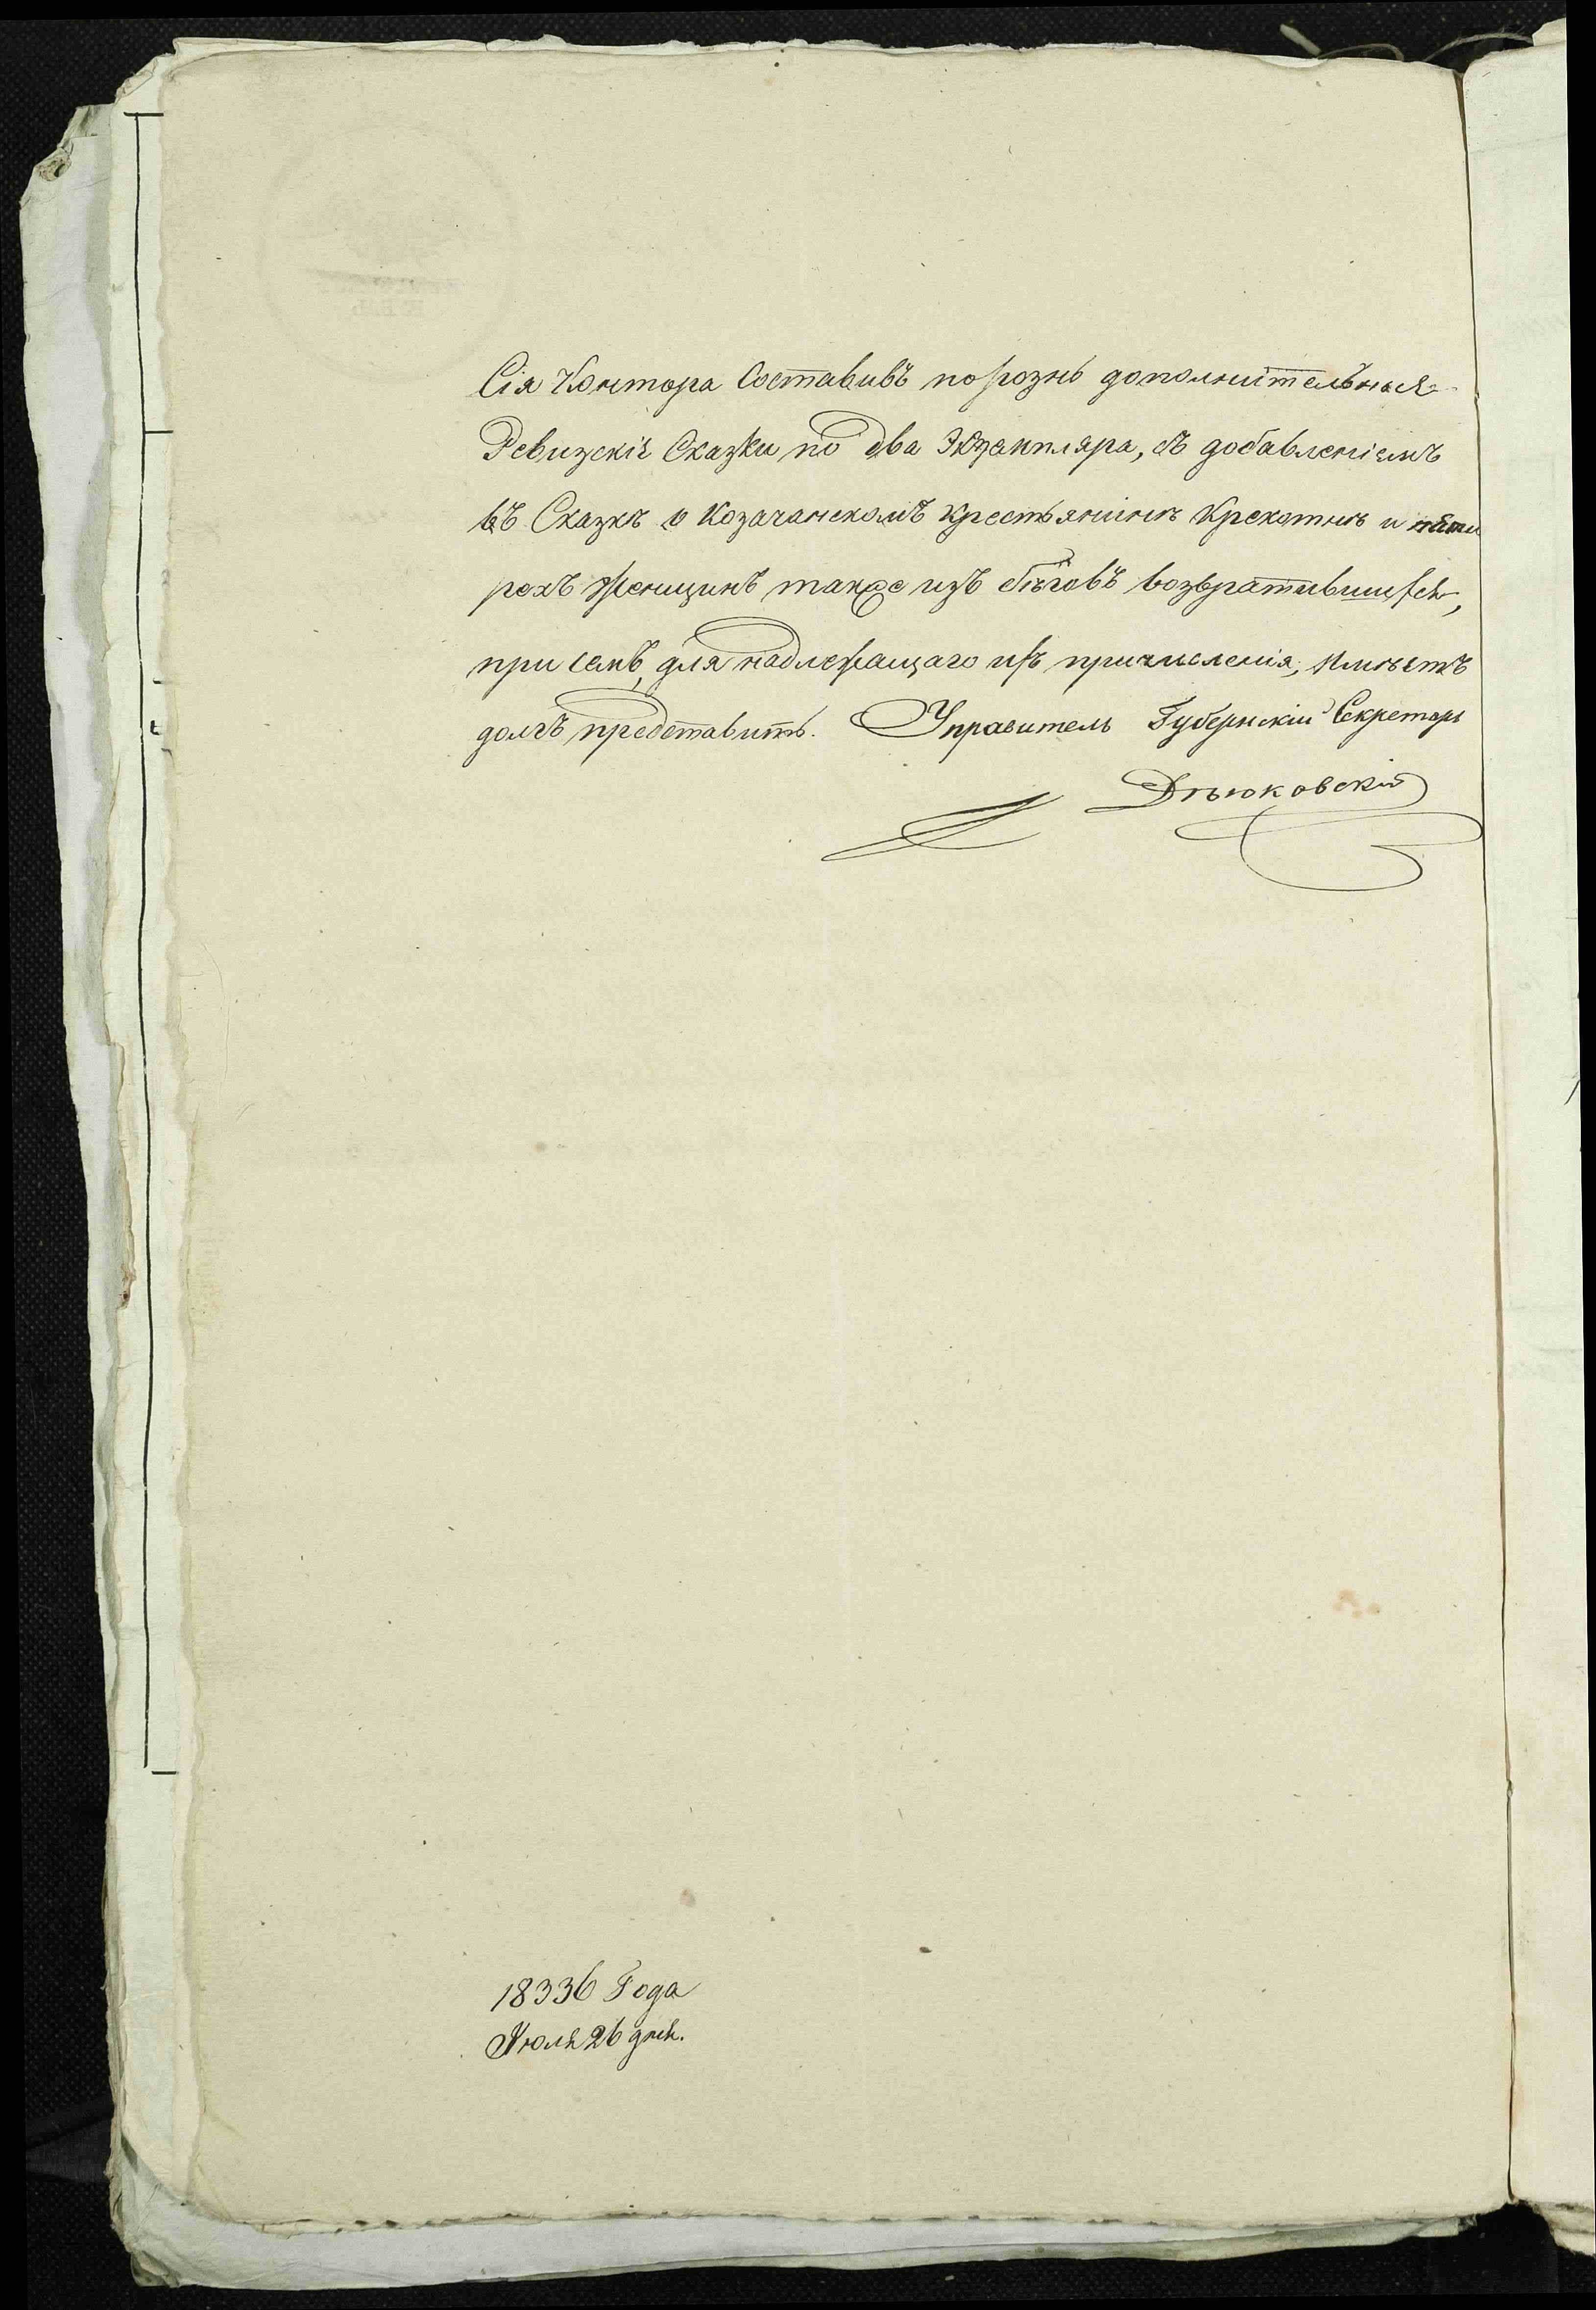 Сія Контора Составивъ порознь дополнительныя
Ревизскіе Сказки по два Экземпляра, съ добавленіемъ
въ Сказкѣ о Козачанскомъ крестьянинѣ Крекотнѣ и четы
рехъ женщинъ также изъ бѣговъ возвратившихся,
при семъ, для надлежащаго ихъ причисленія, имѣетъ
долгъ представить. Управитель Губернскій Секретарь
18336 Года
Іюля 26 дня.